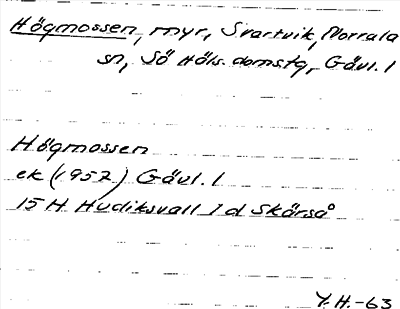 Högmossen, myr, Svartvik, Norrala
sn, Sö Häls. domstg, Gävl. l
Högmossen
ek (1957) Gävl. l
15 H Hudiksvall 1 d Skärså
Y. H. -63